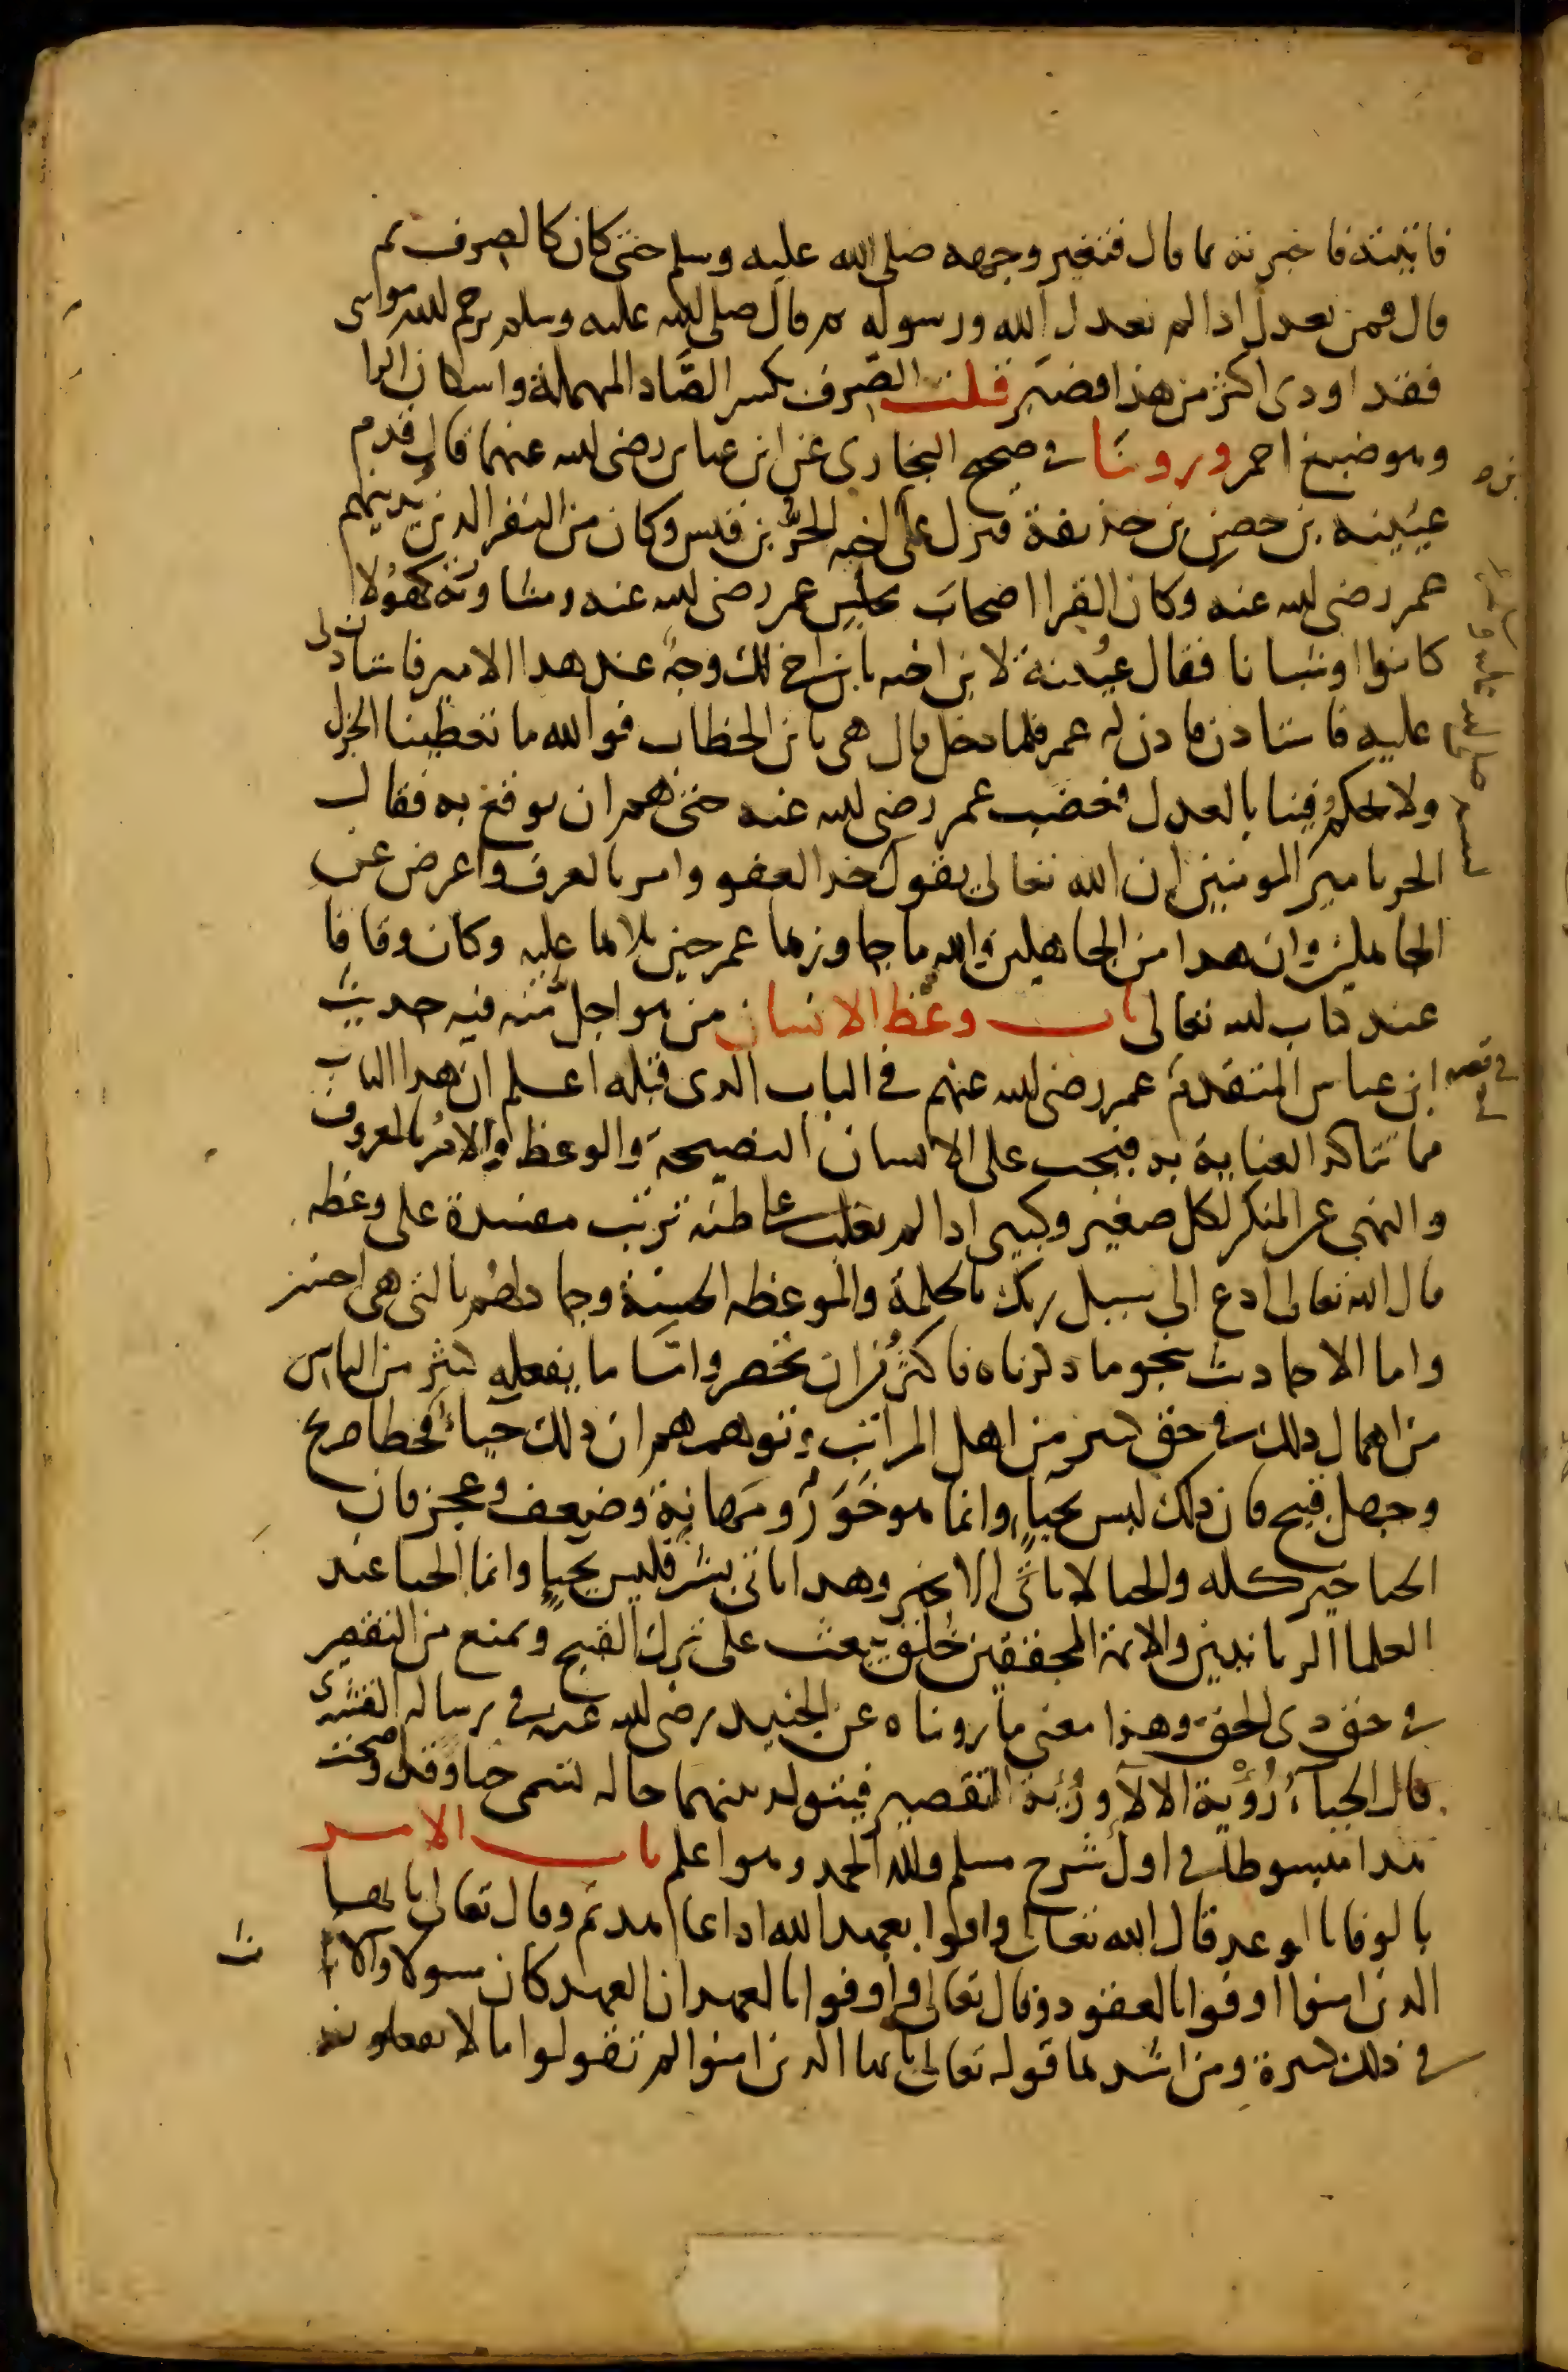 فاتيته فاخبرته بما قال فتغير وجهه صلى الله عليه وسلم حتى كان كالصرف ثم
قال فمن يعدل اذا لم يعدل الله ورسوله ثم قال صلى الله عليه وسلم يرحم الله موسى
فقد اوذى اكثر من هذا فصبر قلت الصِّرف بكسر الصَّاد المهملة واسكان الرا
وهو صبغ احمر وروينَا في صحيح البخارى عن ابن عباس رضى الله عنهما قال قدم
عيَيْنه بن حصن بن حذيفة فنزل على اخيه الحُرِّ بن قيس وكان من النفر الذين يُدنيهم
عمر رضى الله عنه وكان القرا اصحابَ مجلِس عمر رضى الله عنه ومشاورته كهُولا
كانوا او شبانا فقال عيُينة لابن اخيه يابن اخى لك وجهٌ عند هذا الامير فاستاذن لى
عليه فاستاذن فاذن له عمر فلما دخل قال هى يابن الخطاب فوالله ما تعطينا الجزل
ولا تحكُم فينا بالعدل فغضب عمر رضى الله عنه حتى هم ان يوقع به فقال
الحر يا مير المومنين ان الله تعالى يقول خذ العفو وامر بالعرف واعرض عن
الجاهلين وان هذا من الجاهلين والله ما جاوزها عمر حين تلاها عليه وكان وقافا
عند كتاب الله تعالى باب وعْظ الانسان من هو اجلّ منه فيه حديث
ابن عباس المتقدمُ عمر رضى الله عنهم في الباب الذى قبله اعلم ان هذا الباب
مما تتاكد العناية به فيجب على الانسان النصيحة والوعظ والامرُ بالمعروف
والنهى عن المنكر لكل صغير وكبير اذا لم يغلب على ظنه ترتب مفسدة على وعظه
قال الله تعالى ادع الى سبيل ربك بالحكمة والموعظه الحسنة وجادلهُم بالتى هى احسن
واما الاحاديث بنحو ما ذكرناه فاكثَرُ من ان تحصر وامَّا ما يفعله كثير من الناس
من اهمال ذلك في حق كبير من اهل المراتب وتوهمهم ان ذلك حياءٌ فخطا صريح
وجهل قبيح فان ذلك ليس بحيَاٍ وانما هو خَوَرٌ ومَهانةٌ وضعف وعجز فان
الحيا خير كله والحيا لا ياتى الا بخير وهذا ياتى بشر فليس بحياٍ وانما الحيا عند
العلما الربانيين والائمة المحققين خُلق يبعث على ترك القبيح ويمنع من التقصير
في حق ذى الحق وهذا معنى ما رويناه عن الجنيد رضى الله عنه في رسالة القشيرى
قال الحياءُ رُؤْية الالاءِ ورُؤية التقصير فيتولد بينهما حالة تسمى حيا وقد اوضحت
هذا مبسوطا في اول شرح مسلم ولله الحمد وهو اعلم باب الامر
بالوفا بالوعد قال الله تعالى واوفوا بعهد الله اذا عاهدتم وقال تعالى يا يها
الذين امنوا اوفوا بالعقود وقال تعالى واوفوا بالعهد ان العهد كان مسولا والا
ت
في ذلك كثيرة ومن اشدها قوله تعالى يا يها الذين امنوا لم تقولوا ما لا تفعلون
في قصه